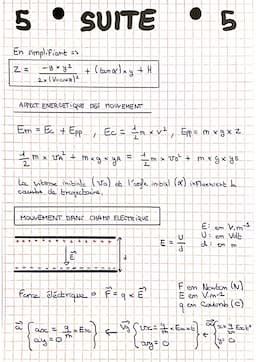 5 • SUITE • 5
En simplifiant =>
Z = -g × x² / 2 × (V₀cosα)² + (tanα) × y + H
ASPECT ENERGETIQUE DES MOUVEMENT
Em = Ec + Epp , Ec = 1/2 m × v² , Epp = m × g × z
1/2 m × VA² + m × g × yA = 1/2 m × VB² + m × g × yB
La vitesse initiale (V₀) et l'angle initial (α) influencent la
courbe de trajectoire.
MOUVEMENT DANS CHAMP ELECTRIQUE
E : en V.m⁻¹
E = U / d
U : en Volt
d : en m
E
Force électrique → F = q × E
F en Newton (N)
E en V.m⁻¹
q en Coulomb (C)